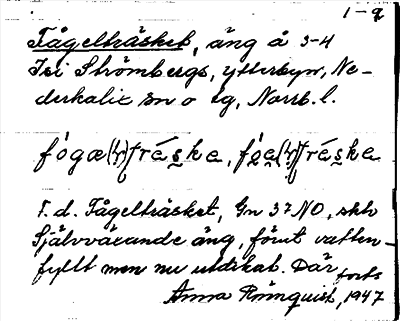 1-2
Fågelträsket, äng å 3-4
Isi Strömbergs, Ytterbyn, Ne-
derkalix sn o lg, Norrb. l.
fógæ(l)tráske, fóga(l)tráske
F. d. Fågelträsket, Gn 37 NO, skh
Självväxande äng, förut vatten-
fyllt men nu utdikat. Där forts
Anna Rönnquist, 1947